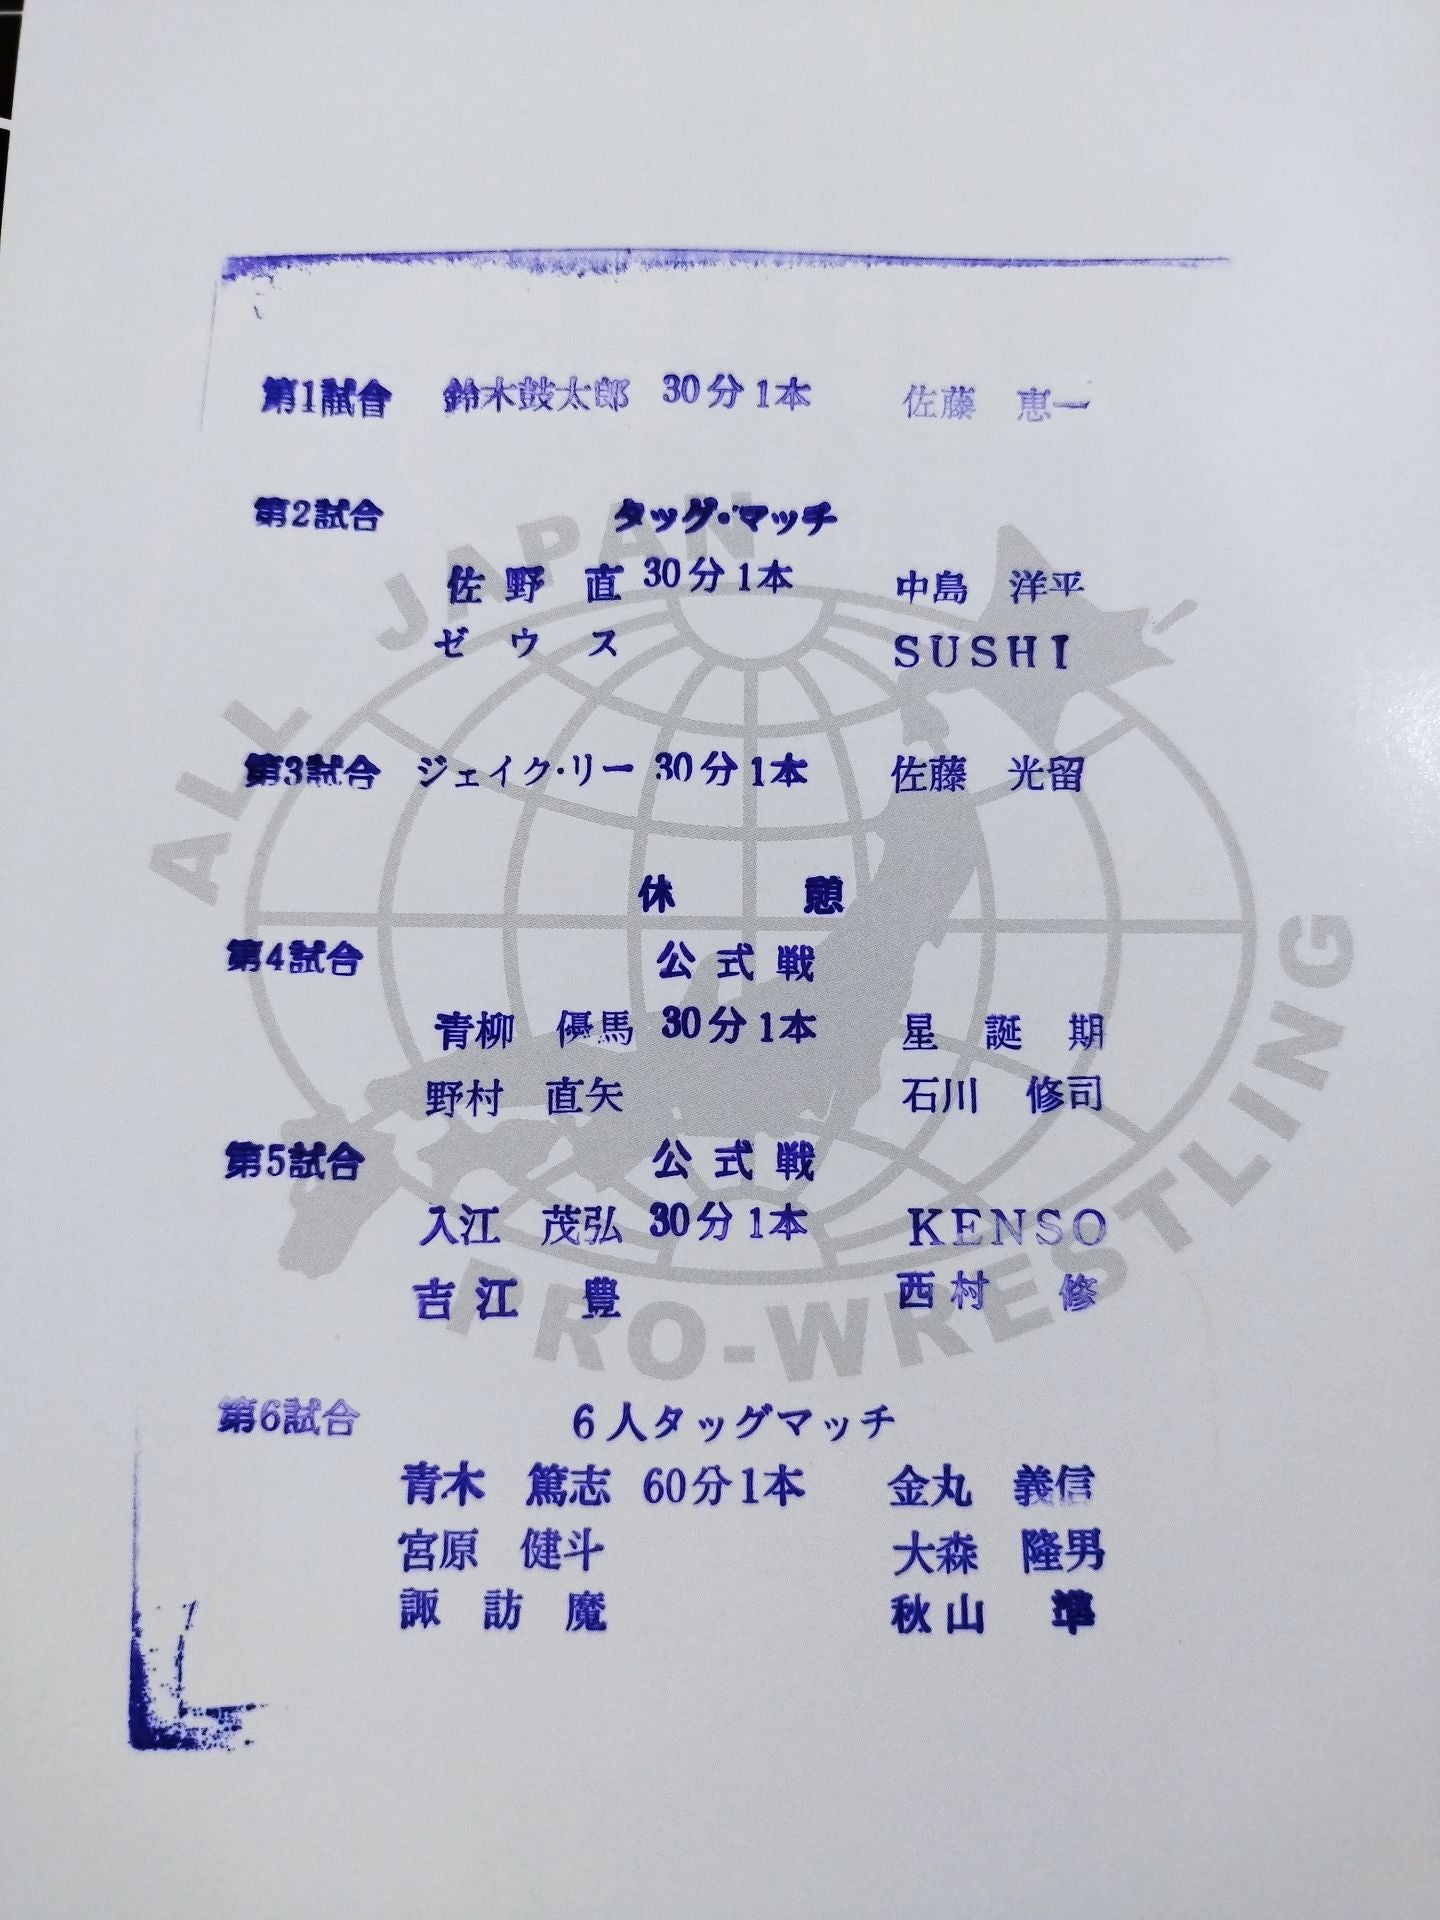 第1試合 鈴木鼓太郎 30分1本 佐藤 恵一
第2試合 タッグ・マッチ
佐野 直 30分1本 中島 洋平
ゼウス SUSHI
第3試合 ジェイク・リー 30分1本 佐藤 光留
休 憩
第4試合 公式戦
青柳 優馬 30分1本 星 誕期
野村 直矢 石川 修司
第5試合 公式戦
入江 茂弘 30分1本 KENSO
吉江 豊 西村 修
第6試合 6人タッグマッチ
青木 篤志 60分1本 金丸 義信
宮原 健斗 大森 隆男
諏訪魔 秋山 準
ALL JAPAN PRO-WRESTLING